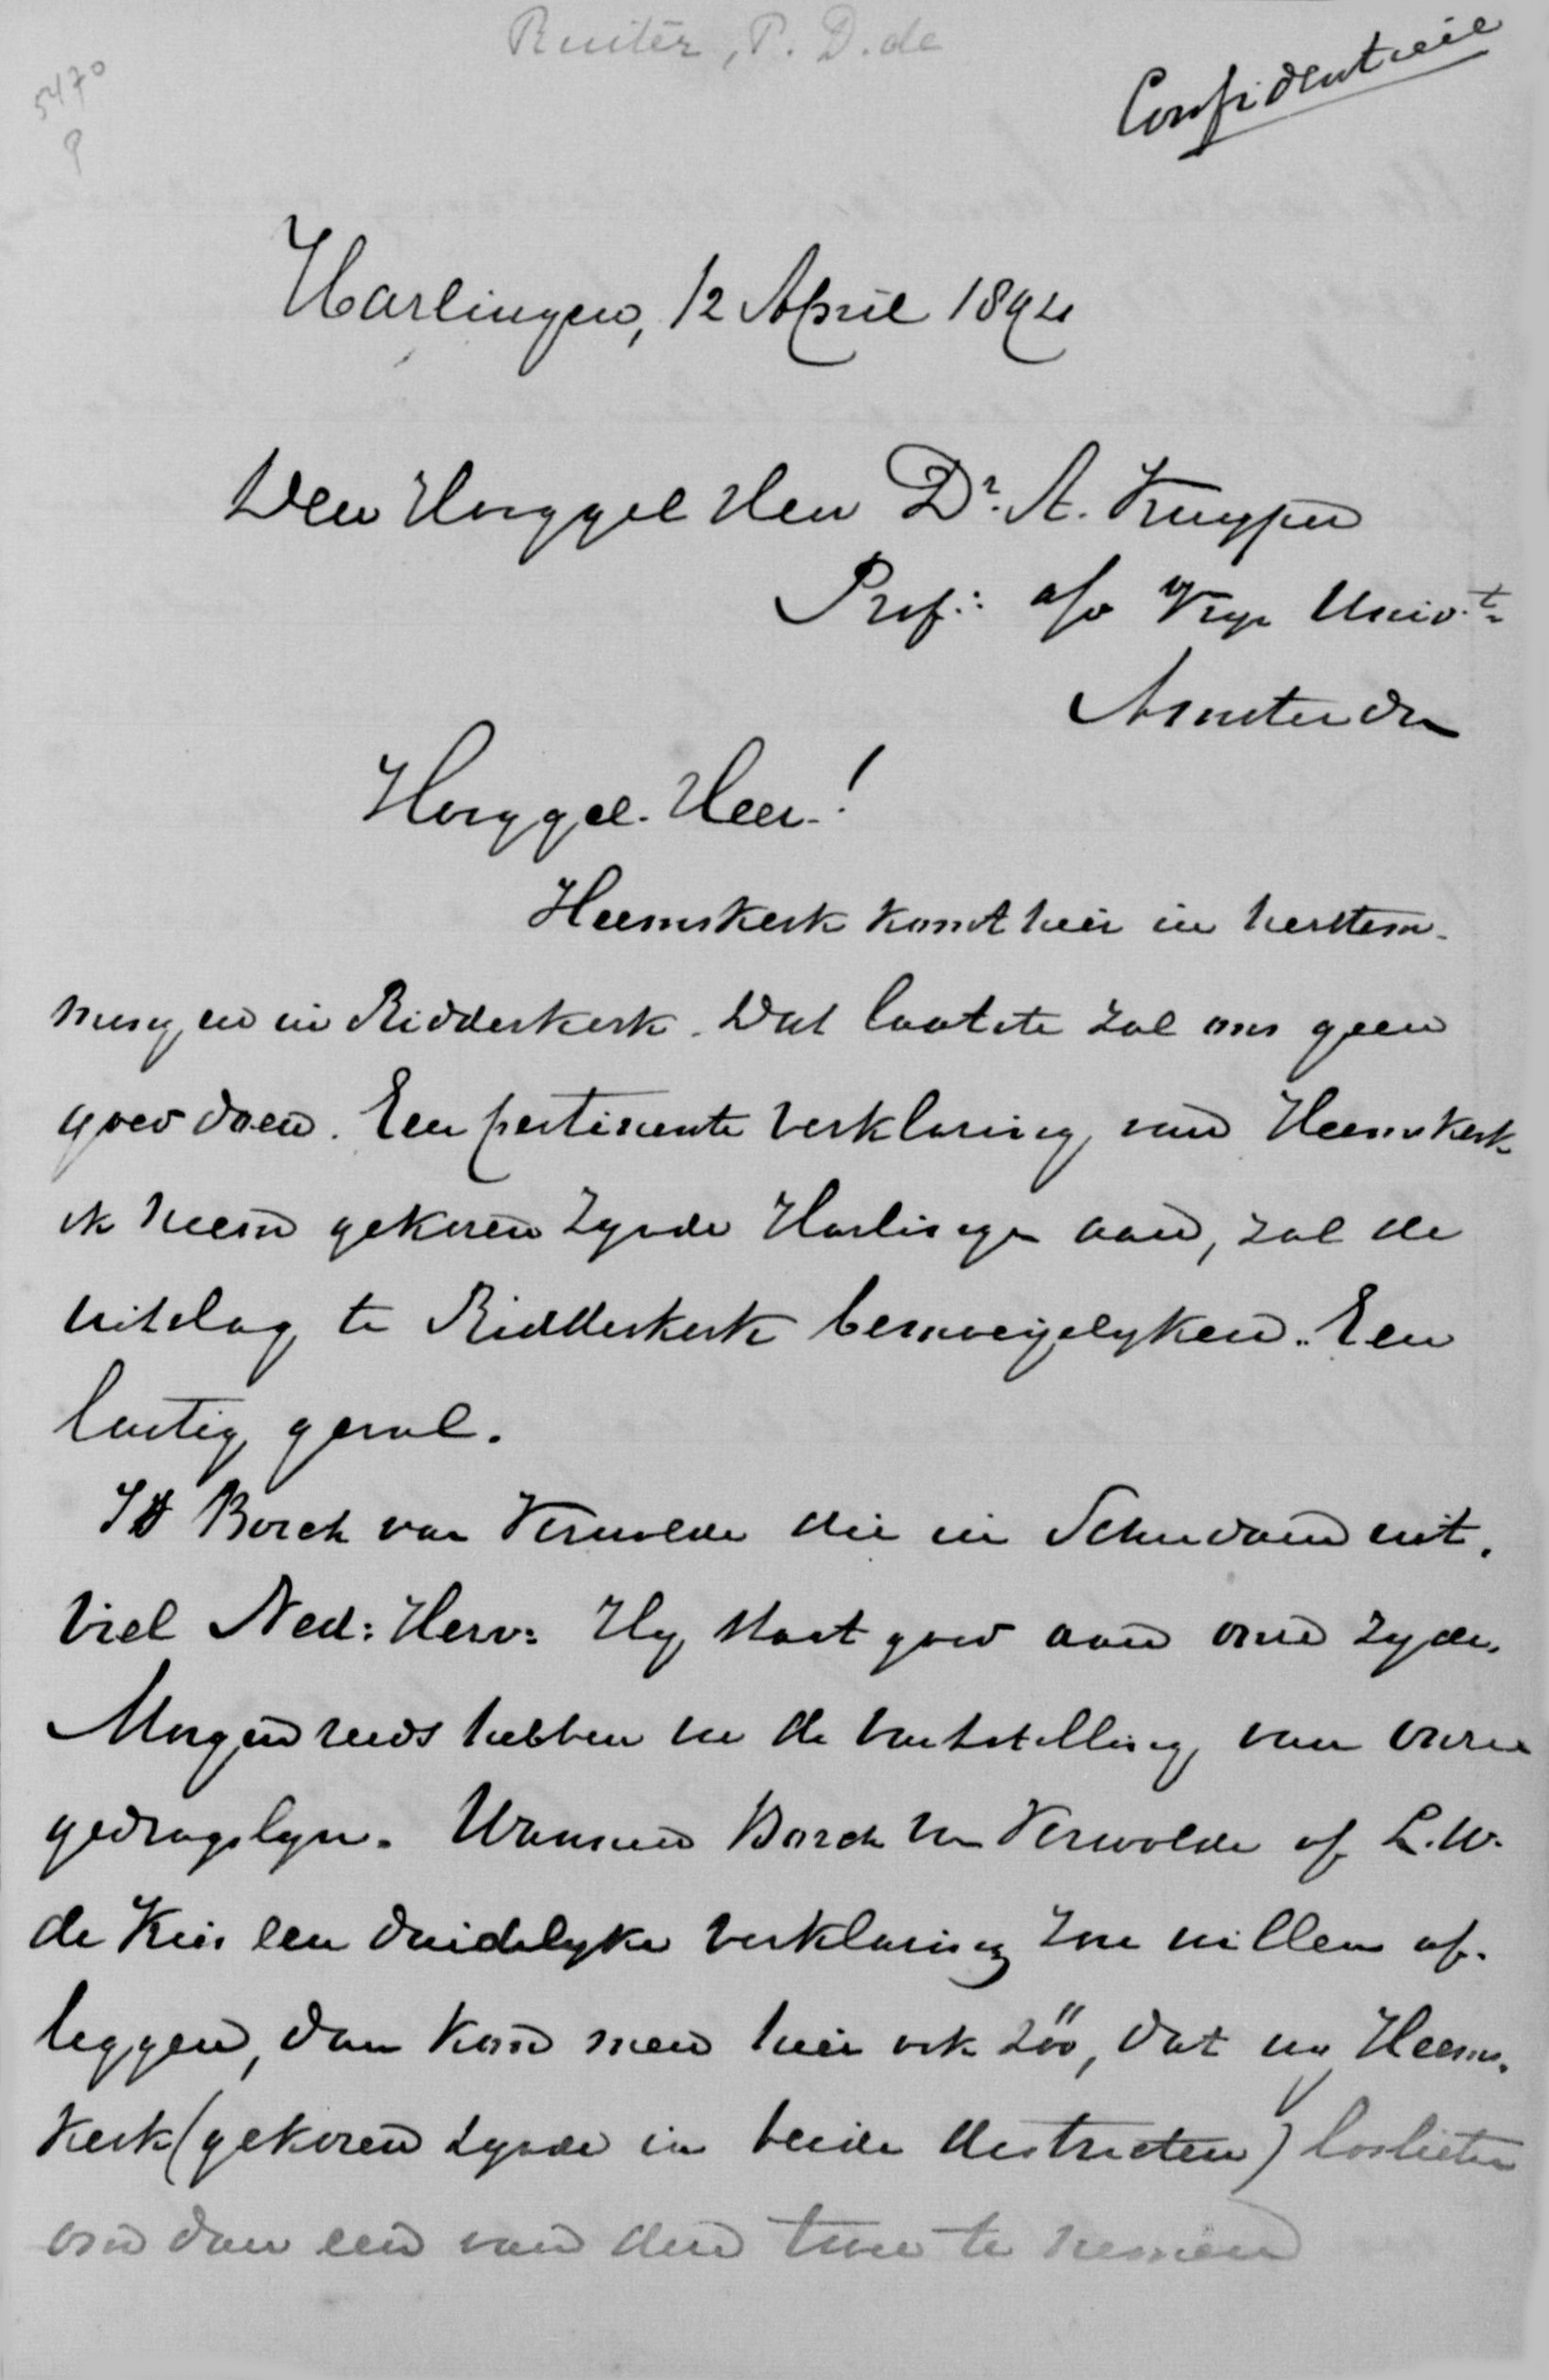 Ruiter, P. D. de
5470
9
Confidentieel
Harlingen, 12 April 1894
Den Hooggel Heer Dr. A. Kuyper
Prof: a/d Vrye Univt.
Amsterdam
Hooggel. Heer!
Heemskerk komt hier in herstem-
ming en in Ridderkerk. Dat laatste zal ons geen
goed doen. Een pertinente verklaring van Heemskerk
ik neem gekozen zynde Harlingen aan, zal de
uitslag te Ridderkerk bemoeijelyken. Een
lastig geval.
Is Borch van Verwolde die in Schiedam uit-
viel Ned: Herv: Hy staat goed aan onze zyde.
Morgen reeds hebben we de vaststelling van onze
gedragslyn. Wanneer Borch van Verwolde of L.W.
de Keis een duidelyke verklaring zou willen af-
leggen, dan kon men hier ook zóó, dat wy Heems-
kerk (gekozen zynde in beide districten) loslieten
om dan een van den twee te nemen